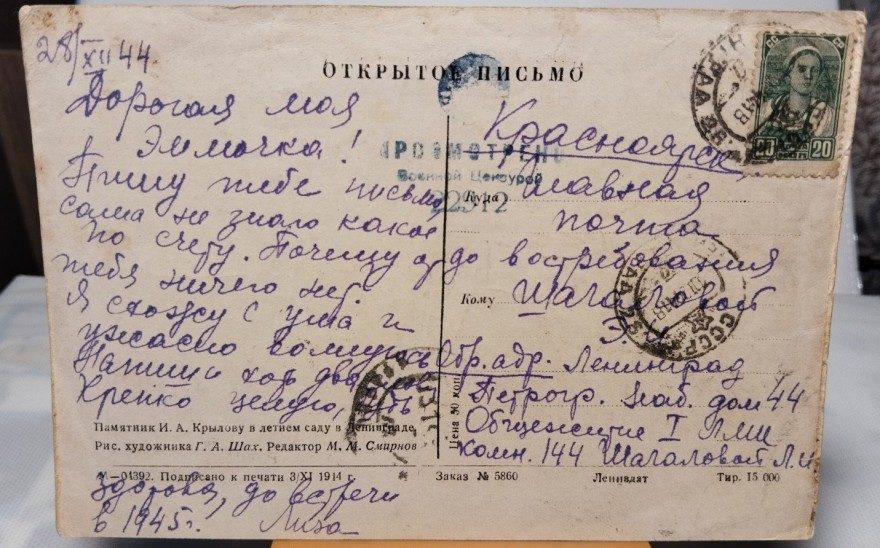 28/XII 44
Дорогая моя
Эммочка!
Пишу тебе письмо
сама не знаю какое
по счету. Почему от
тебя ничего нет.
Я схожу с ума и
ужасно волнуюсь
Напиши хоть два
Крепко целую, будь
здорова, до встречи
в 1945г. Лиза
ОТКРЫТОЕ ПИСЬМО
ПРОСМОТРЕНО
Военной Цензурой
22312
Красноярск
Куда
Главная
почта
до востребования
Кому
Шагаловой
Э.
Обр. адр. Ленинград
Петрогр. наб. дом 44
Общежитие I ЛМИ
комн. 144 Шагаловой Л.И
Цена 50 коп
Памятник И. А. Крылову в летнем саду в Ленинграде.
Рис. художника Г. А. Шах. Редактор М. М. Смирнов
М—04392. Подписано к печати 3/XI 1914 г.
Заказ № 5860
Лениздат
Тир. 15 000
20
20
СССР